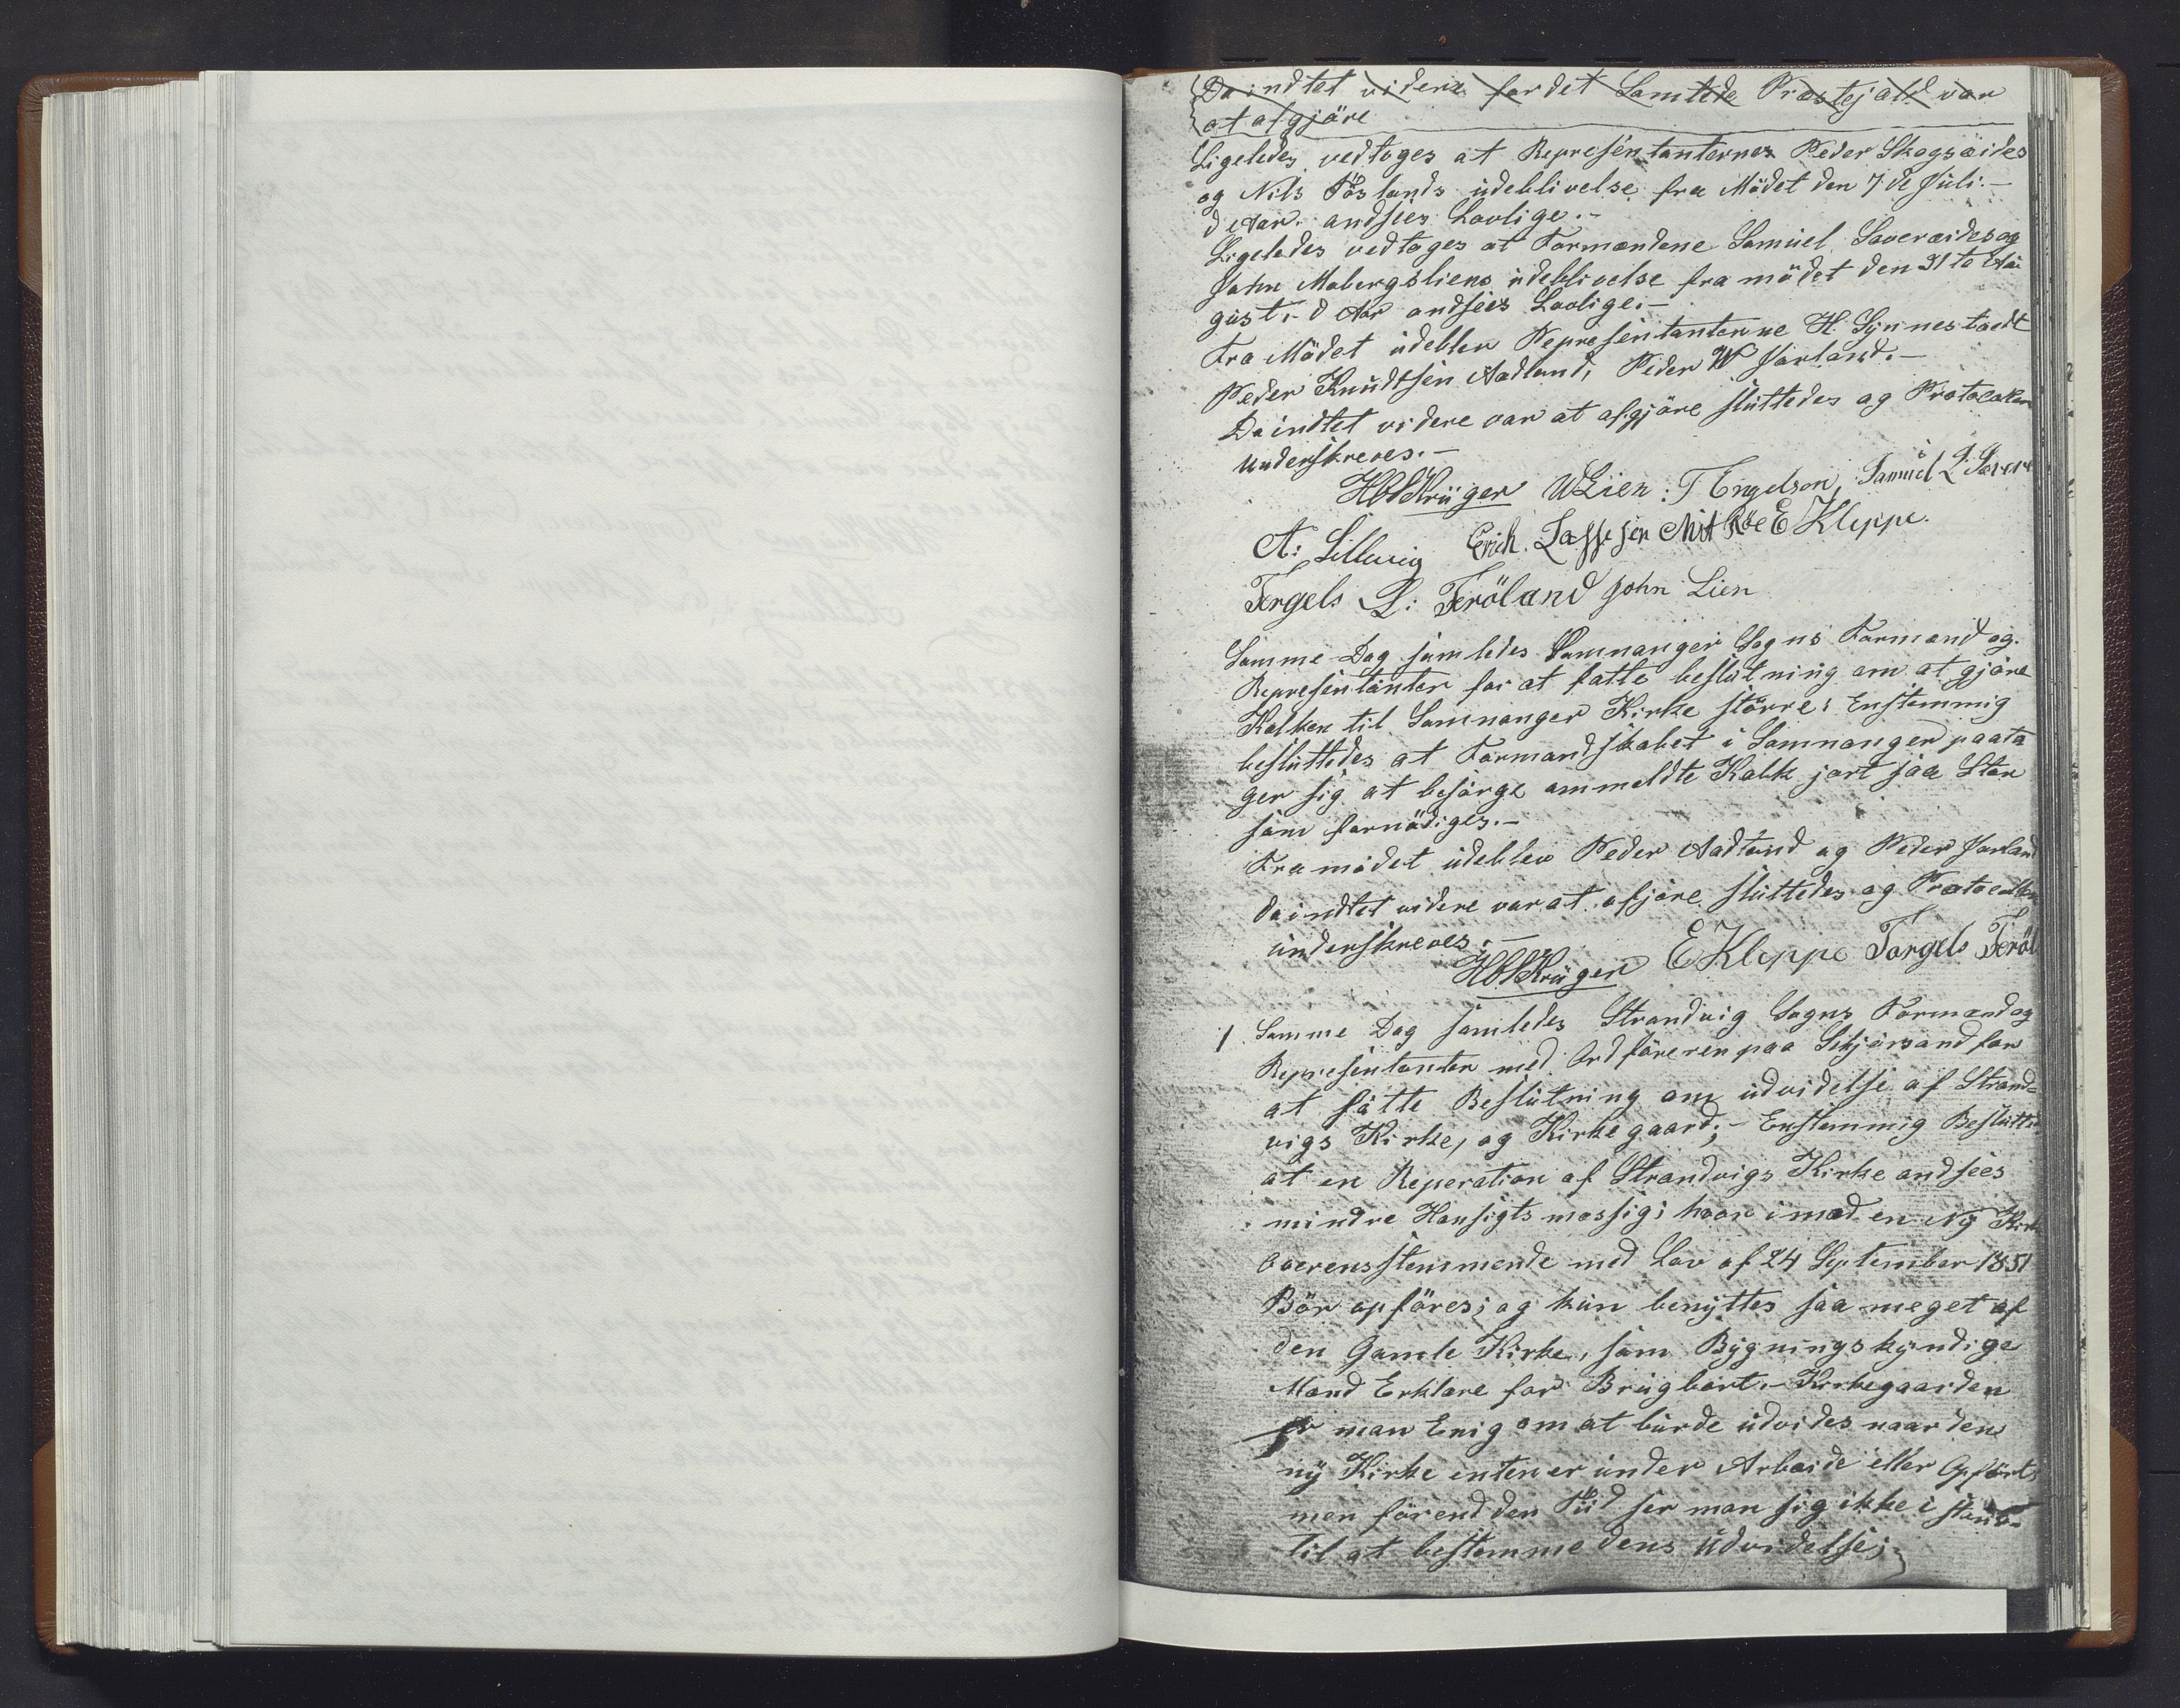 Da indtet videre for det Samtlede Præstejæld var
at afgjöre
Ligeledes vedtoges at Representanternes Peder Skogsæides
og Nils Röslands udeblivelse fra Mödet den 7de Juli.-
d Aar. andsees Lovlige.-
Ligeledes vedtoges at Formændene Samuel Saveræides og
John Mobergsliens udeblivelse fra mödet den 31te Au
gust.- d Aar andsees Lovlige.-
Fra Mödet udeblev Representanterne H. Synnestvedt
Peder Knudtsen Aadland, Peder W Jarland.-
Da indtet videre var at afgjöre sluttedes og Protocolen
underskreves.-
Krüger W Lien : T Engelson, Samuel L:
A: Lillevig Erich. Lassesen E Kleppe.
Torgels L: Tveröland John Lien
Samme Dag samledes Samnanger Sogns Formænd og.
Representanter for at fatte beslutning om at gjöre
Kalken til Samnanger Kirke större: Enstemmig
besluttedes at Formandskabet i Samnanger paata
ger sig at besörge ommeldte Kalk jort saa Stor
som fornödiges.-
Fra mödet udeblev Peder Aadland og Peder Jarland
da indtet videre var at afjöre sluttedes og Protocollen
underskreves.-
Krüger E Kleppe Torgels Tveröl
1. Samme Dag samledes Strandvig Sogns Formænd og
Representanter med Ordföreren paa Skjörsand for
at fatte Beslutning om udvidelse af Strand=
vigs Kirke, og Kirkegaard;- Enstemmig Beslutted
at en Reperation af Strandvigs Kirke andsees
mindre Hensigtsmæssig; hvor imod en Ny Kirke
Overensstemmende med Lov af 24 September 1851
Bör opföres; og kun benyttes saa meget af
den Gamle Kirke, som Bygningskyndige
Mænd Erklære for Brugbart.- Kirkegaarden
er man Enig om at burde udvides naar den
ny Kirke enten er under Arbeide eller Opfört,
men förend den Tiid ser man sig ikke i stand
til at bestemme dens Udvidelse;